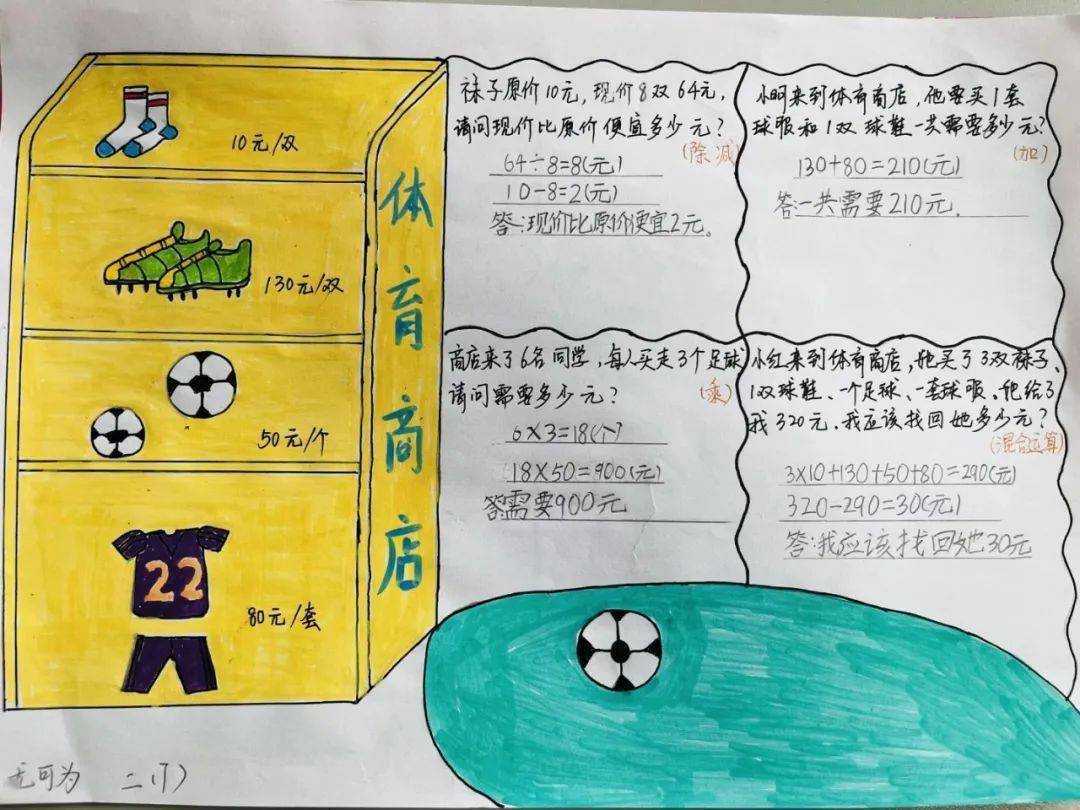 10元/双
130元/双
50元/个
80元/套
体育商店
袜子原价10元,现价8双64元,
请问现价比原价便宜多少元?
(除减)
64÷8=8(元)
10-8=2(元)
答:现价比原价便宜2元。
小明来到体育商店,他要买1套
球服和1双球鞋一共需要多少元?
(加)
130+80=210(元)
答:一共需要210元.
商店来了6名同学,每人买走3个足球
请问需要多少元?
(乘)
6×3=18(个)
18×50=900(元)
答需要900元
小红来到体育商店,她买了3双袜子、
1双球鞋、一个足球、一套球服。她给了
我320元.我应该找回她多少元?
(混合运算)
3×10+130+50+80=290(元)
320-290=30(元)
答:我应该找回她30元
22
可为 二(1)